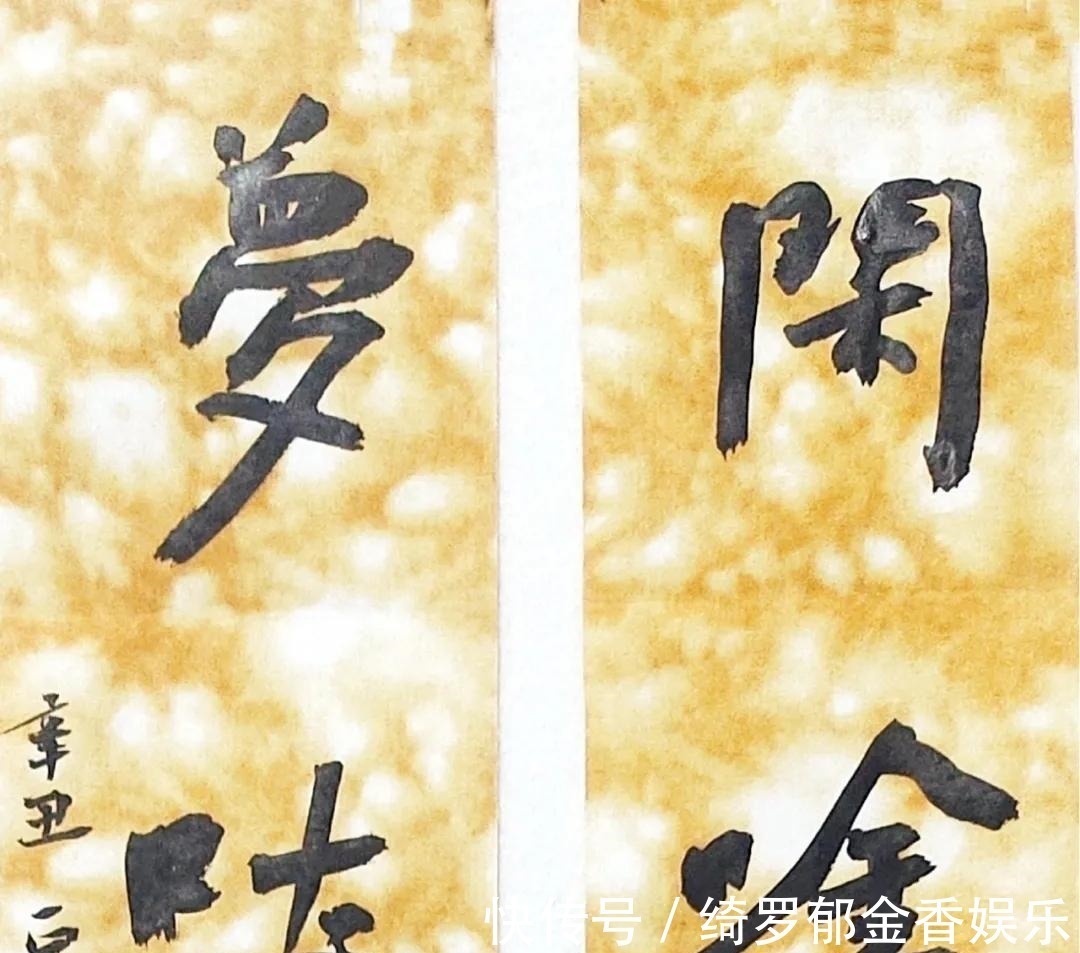 閑
夢
辛丑
快传号 / 绮罗郁金香娱乐